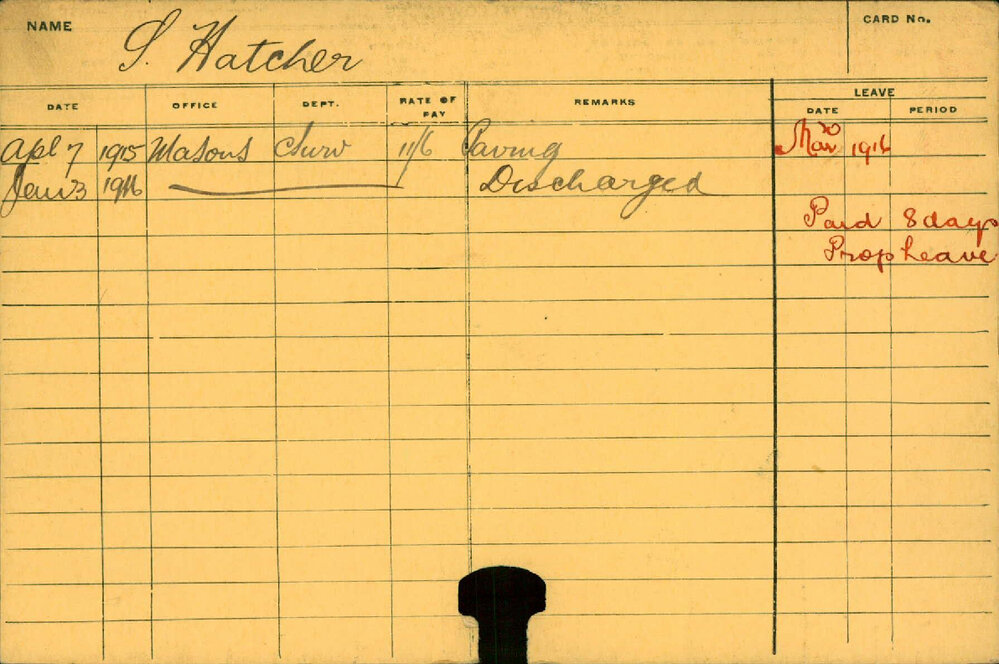 NAME S. Hatcher CARD No.
DATE OFFICE DEPT. RATE OF PAY REMARKS LEAVE
DATE PERIOD
Apl 7 1915 Masons Surv 11/6 Paving Mar 30 1916
Jan 3 1916 Discharged
Paid 8 days
Prop Leave